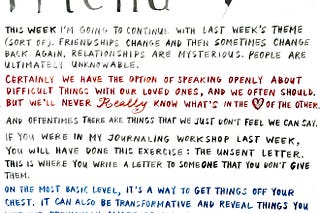 THIS WEEK I'M GOING TO CONTINUE WITH LAST WEEK'S THEME
(SORT OF). FRIENDSHIPS CHANGE AND THEN SOMETIMES CHANGE
BACK AGAIN. RELATIONSHIPS ARE MYSTERIOUS. PEOPLE ARE
ULTIMATELY UNKNOWABLE.
CERTAINLY WE HAVE THE OPTION OF SPEAKING OPENLY ABOUT
DIFFICULT THINGS WITH OUR LOVED ONES, AND WE OFTEN SHOULD.
BUT WE'LL NEVER Really KNOW WHAT'S IN THE ♥ OF THE OTHER.
AND OFTENTIMES THERE ARE THINGS THAT WE JUST DON'T FEEL WE CAN SAY.
IF YOU WERE IN MY JOURNALING WORKSHOP LAST WEEK,
YOU WILL HAVE DONE THIS EXERCISE: THE UNSENT LETTER.
THIS IS WHERE YOU WRITE A LETTER TO SOMEONE THAT YOU DON'T GIVE
THEM.
ON THE MOST BASIC LEVEL, IT'S A WAY TO GET THINGS OFF YOUR
CHEST. IT CAN ALSO BE TRANSFORMATIVE AND REVEAL THINGS YOU